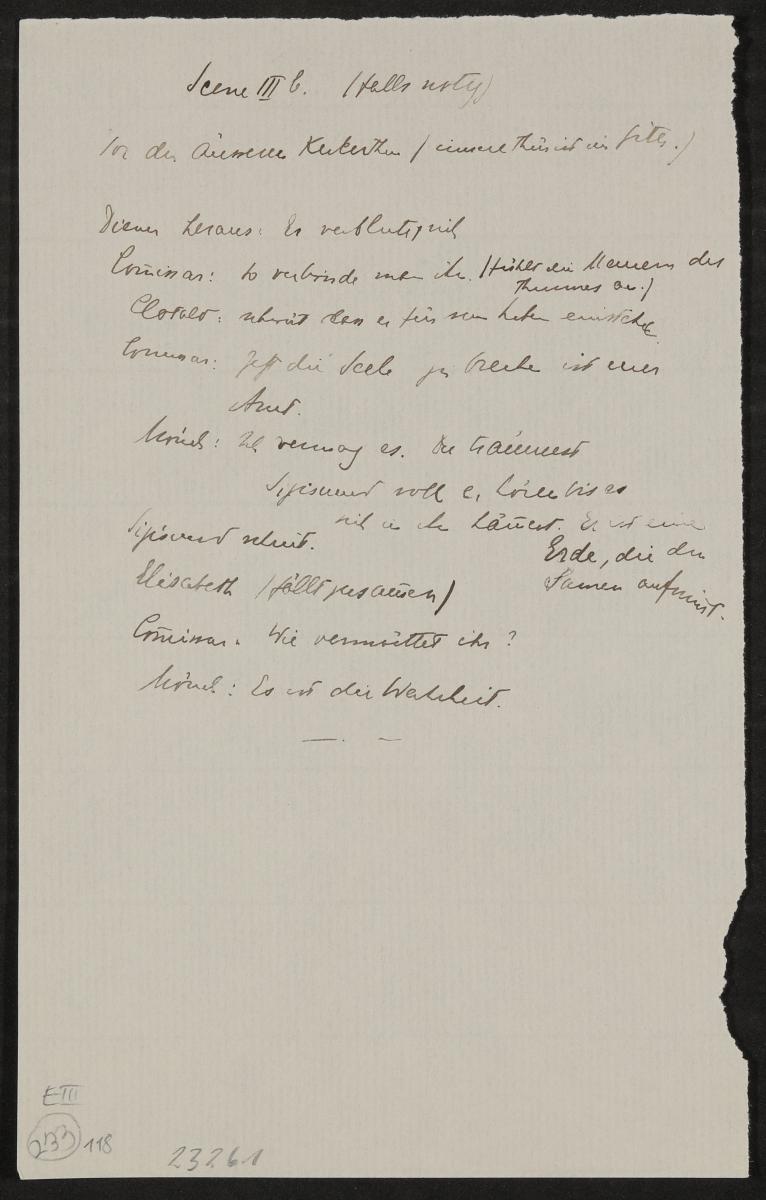 Scene III b. (falls nötig)
Vor der äusseren Kerkerthür (innere Thür ist ein Gitter.)
Diener heraus: Er verblutet sich
Comissar: So verbinde man ihn. (fühlt die Mauern des
Thurmes an.)
Clotald: schwört dass er für sein Leben einstehe
Comissar: Jetzt die Seele zu brechen ist euer
Amt.
Mönch: Ich vermag es. Du träumest
Sigismund soll es hören bis es
sich in ihn hämmert. Er ist eine
Erde, die den
Samen aufnimt.
Sigismund schreit.
Elisabeth (fällt zusamen)
Comissar. Wie vermöchtet ihr?
Mönch: Es ist die Wahrheit.
E III
233 118
23261